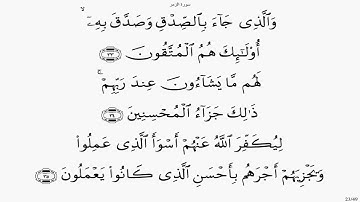 سورة الزمر
وَالَّذِي جَاءَ بِالصِّدْقِ وَصَدَّقَ بِهِۦٓ ۙ
أُولَٰٓئِكَ هُمُ الْمُتَّقُونَ ﴿٣٣﴾
لَهُم مَّا يَشَاءُونَ عِندَ رَبِّهِمْ ۚ
ذَٰلِكَ جَزَاءُ الْمُحْسِنِينَ ﴿٣٤﴾
لِيُكَفِّرَ اللَّهُ عَنْهُمْ أَسْوَأَ الَّذِي عَمِلُوا
وَيَجْزِيَهُمْ أَجْرَهُم بِأَحْسَنِ الَّذِي كَانُوا يَعْمَلُونَ ﴿٣٥﴾
23/49